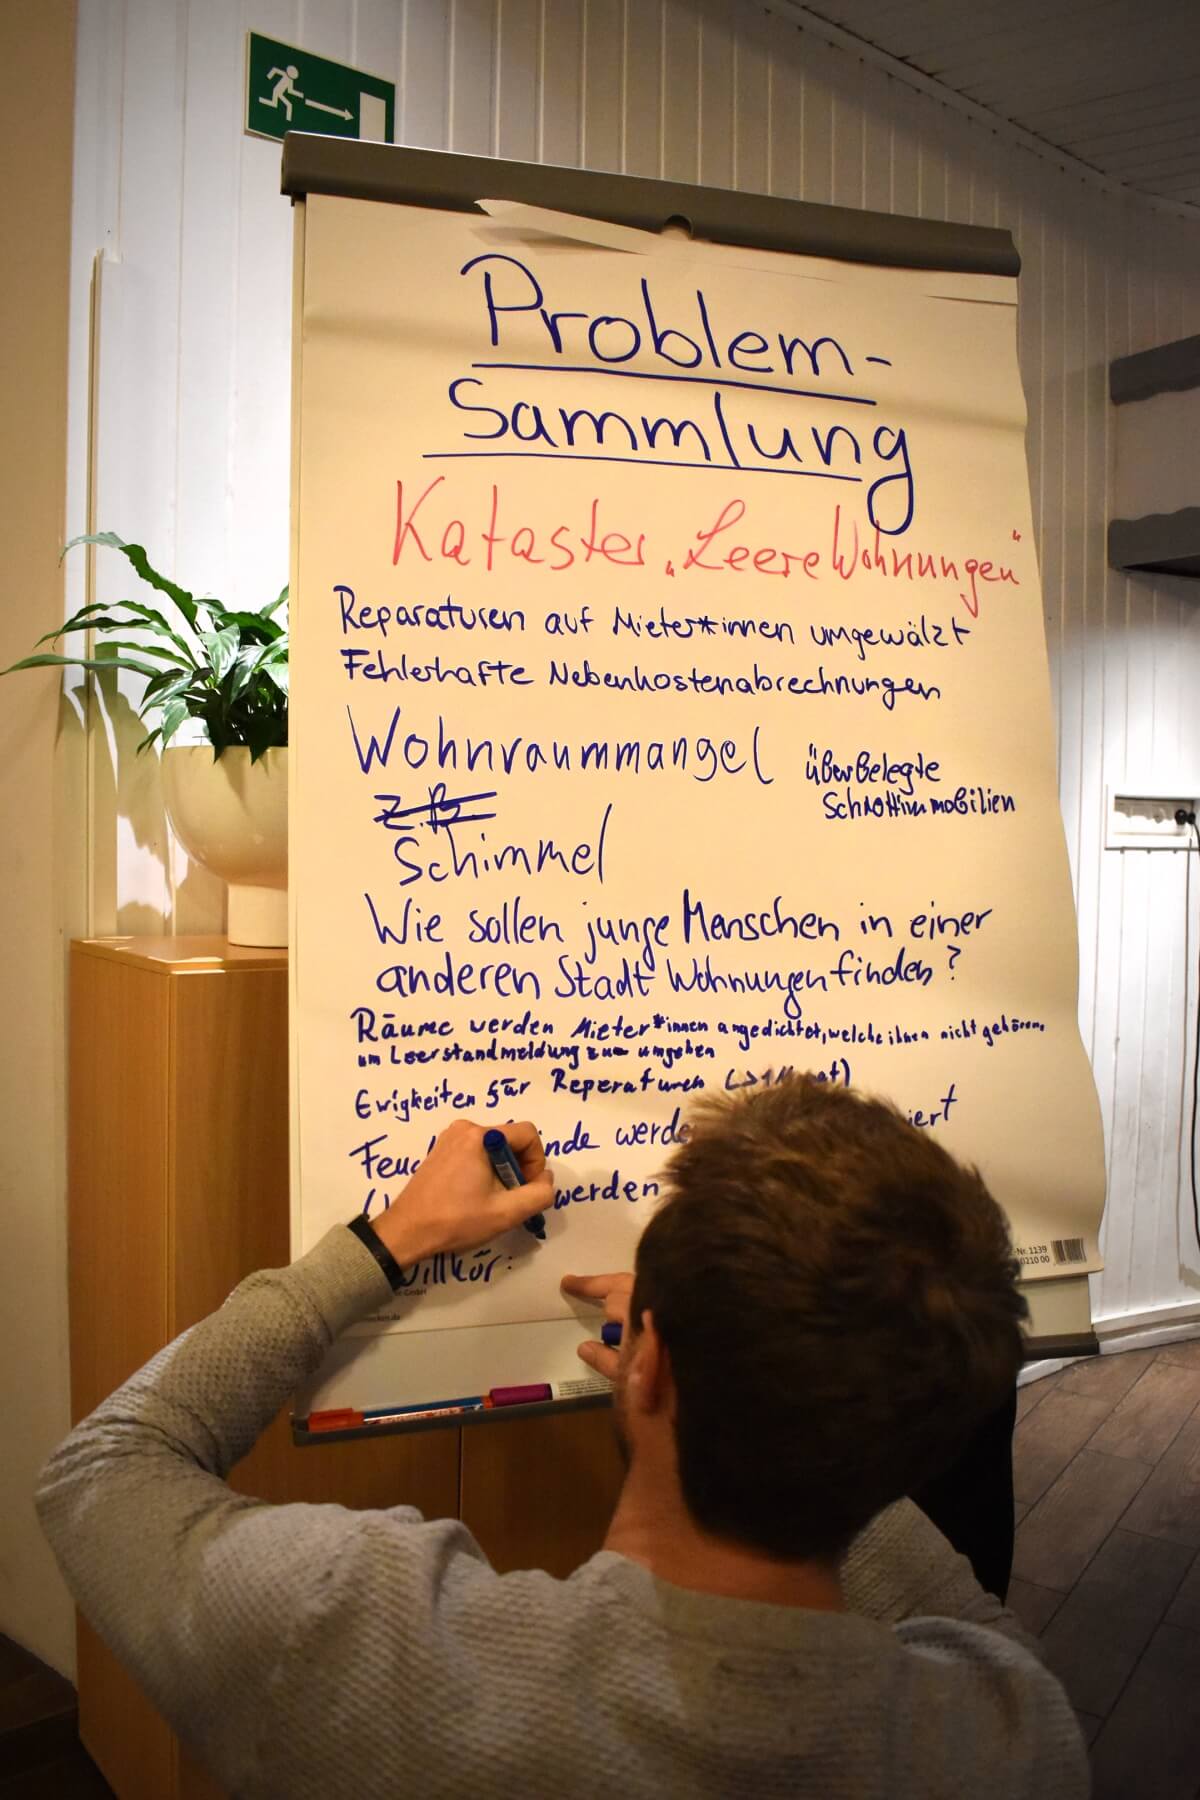 Problem-
Sammlung
Kataster „Leere Wohnungen“
Reparaturen auf Mieter*innen umgewälzt
Fehlerhafte Nebenkostenabrechnungen
Wohnraummangel
überbelegte
Schrottimmobilien
z.B.
Schimmel
Wie sollen junge Menschen in einer
anderen Stadt Wohnungen finden?
Räume werden Mieter*innen angedichtet, welche ihnen nicht gehören,
um Leerstandmeldung zu umgehen
Ewigkeiten für Reperaturen (>1 Monat)
werde
werden
Willkür:
-Nr. 1139
0210 00
GmbH